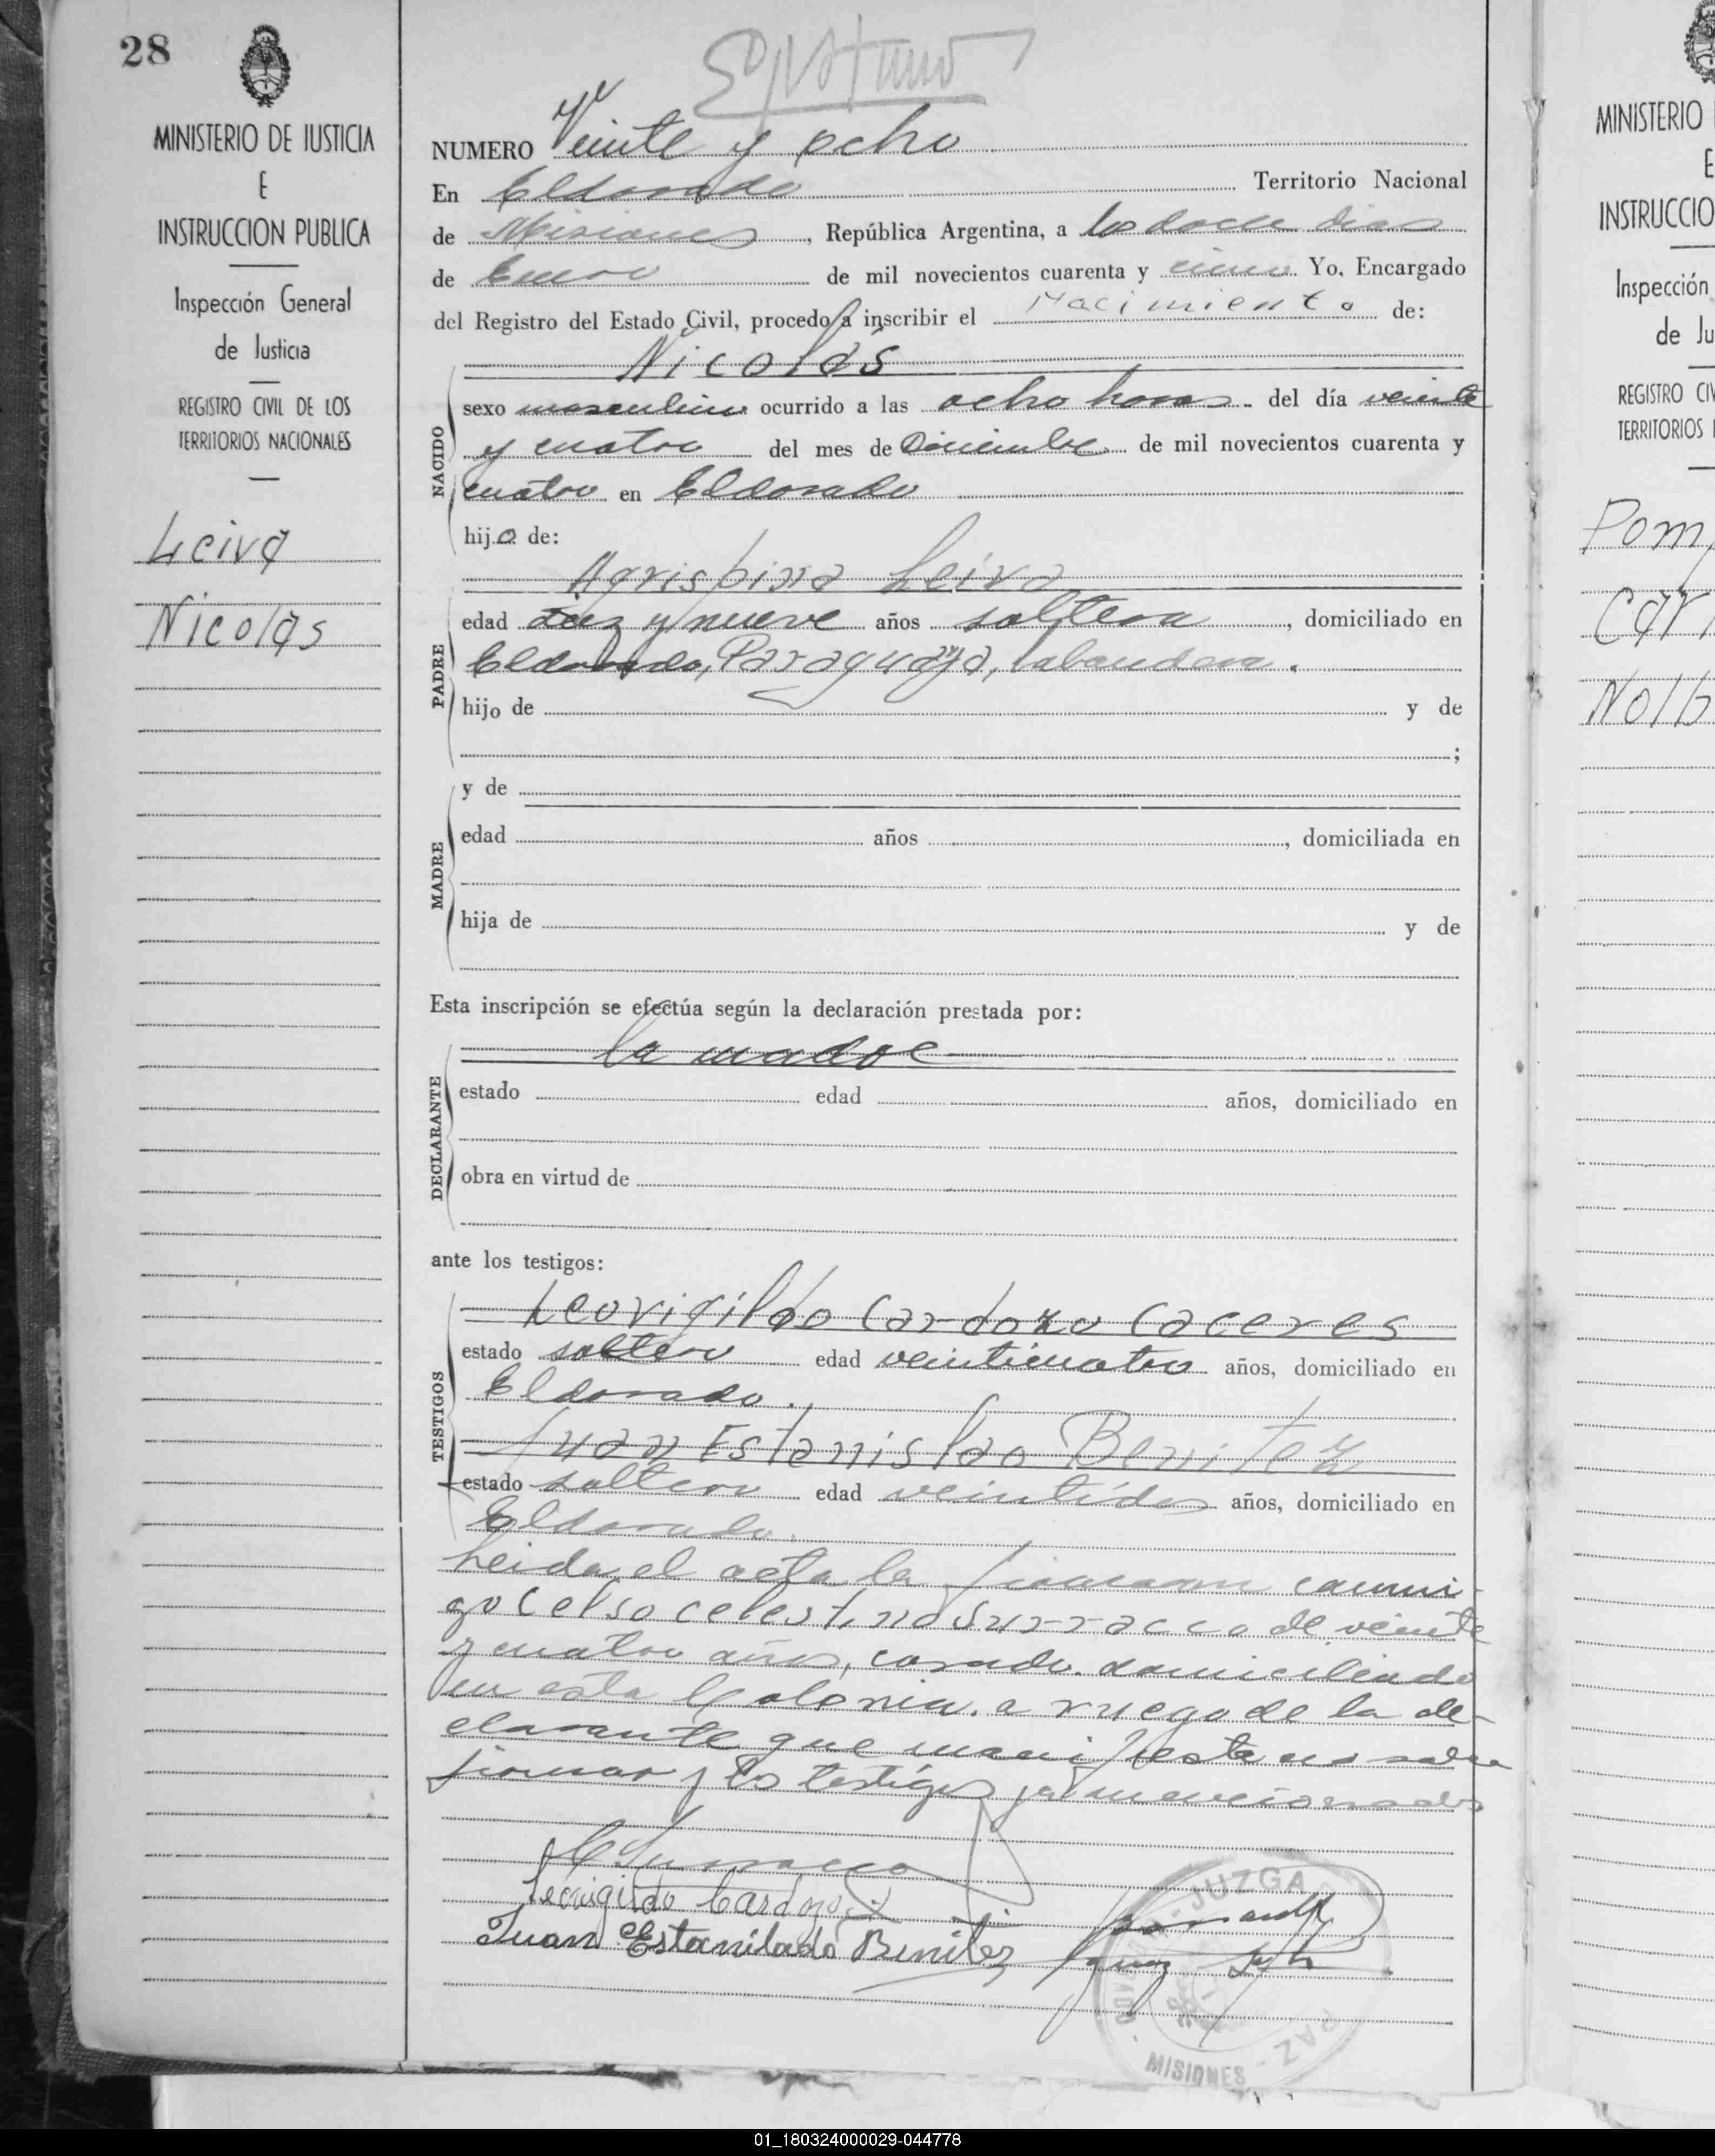 28
MINISTERIO DE JUSTICIA
E
INSTRUCCION PUBLICA
Inspección General
de Justicia
REGISTRO CIVIL DE LOS
TERRITORIOS NACIONALES
Leiva
Nicolas
NUMERO Veinte y ocho
En Eldorado Territorio Nacional
de Misiones, República Argentina, a los doce dias
de Enero de mil novecientos cuarenta y cinco Yo, Encargado
del Registro del Estado Civil, procedo a inscribir el Nacimiento de:
Nicolás
NACIDO
sexo masculino ocurrido a las ocho horas del día veinte
y cuatro del mes de Diciembre de mil novecientos cuarenta y
cuatro en Eldorado
hijo de:
Agrispina Leiva
PADRE
edad diez y nueve años soltera, domiciliado en
Eldorado, Paraguaya, labandera.
hijo de y de
;
y de
MADRE
edad años , domiciliada en
hija de y de
Esta inscripción se efectúa según la declaración prestada por:
la madre
DECLARANTE
estado edad años, domiciliado en
obra en virtud de
ante los testigos:
Leovigildo Cardozo Caceres
TESTIGOS
estado soltero edad veinticuatro años, domiciliado en
Eldorado.
Juan Estanislao Benitez
estado soltero edad veintidos años, domiciliado en
Eldorado.
Leida el acta la firmaron conmi-
go Celso Celestino Surracco de veinte
y cuatro años, casado. domiciliado
en esta Colonia. a ruego de la de-
clarante que manifiesta no saber
firmar y los testigos ya mencionados
C Surracco
Leovigildo Cardozo C
Juan Estanilado Benitez
JUZGA
PAZ
MISIONES
MINISTERIO
E
INSTRUCCIO
Inspección
de Ju
REGISTRO CIV
TERRITORIOS
Pom
Car
Nolb
01_180324000029-044778